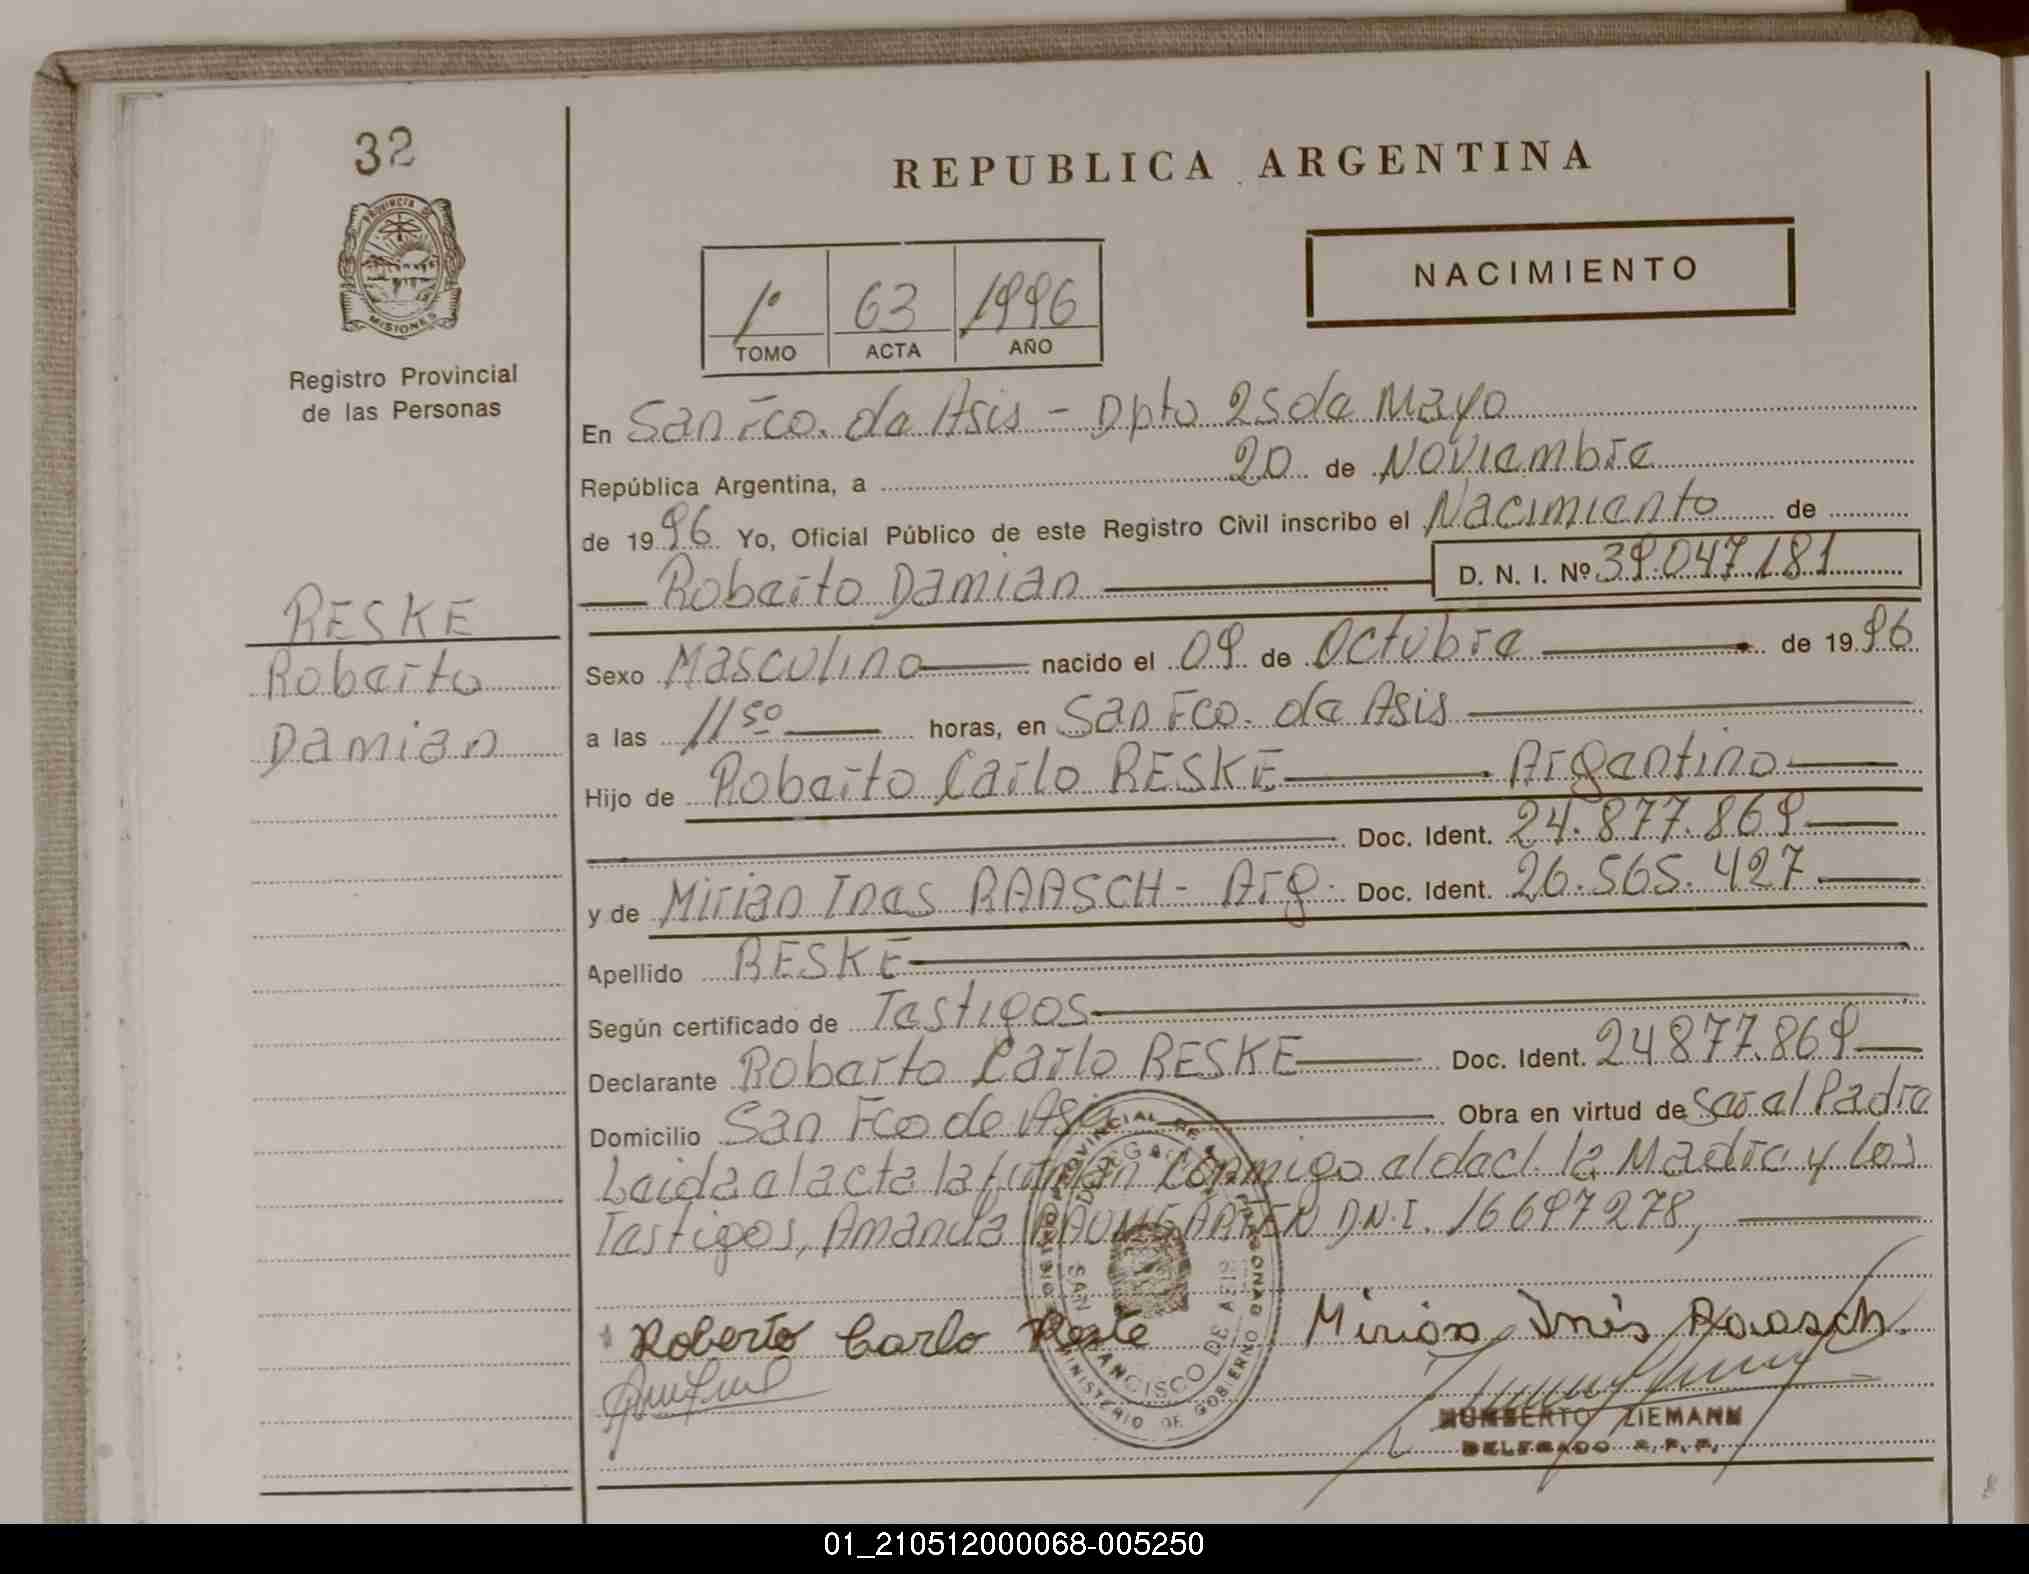 32
PROVINCIA DE
MISIONES
Registro Provincial
de las Personas
RESKE
Roberto
Damian
REPUBLICA ARGENTINA
NACIMIENTO
1º 63 1996
TOMO ACTA AÑO
En San Fco. de Asis - Dpto 25 de Mayo
República Argentina, a 20 de Noviembre
de 1996 Yo, Oficial Público de este Registro Civil inscribo el Nacimiento de
Roberto Damian D. N. I. Nº 39.047.181
Sexo Masculino nacido el 09 de Octubre de 1996
a las 11 50 horas, en San Fco. de Asis
Hijo de Roberto Carlo RESKE Argentino
Doc. Ident. 24.877.869
y de Mirian Ines RAASCH - Arg. Doc. Ident. 26.565.427
Apellido RESKE
Según certificado de Testigos
Declarante Roberto Carlo RESKE Doc. Ident. 24877.869
Domicilio San Fco de Asis Obra en virtud de Ser el Padre
Leida el acta la firman conmigo el decl. la Madre y los
Testigos, Amanda BAUMGARTEN D.N.I. 16697278,
Roberto Carlo Reske Mirian Inés Raasch.
HUMBERTO ZIEMANN
DELEGADO R.P.P.
REGISTRO PROVINCIAL DE LAS PERSONAS
MINISTERIO DE GOBIERNO
DELEGACION
SAN FRANCISCO DE ASIS
01_210512000068-005250